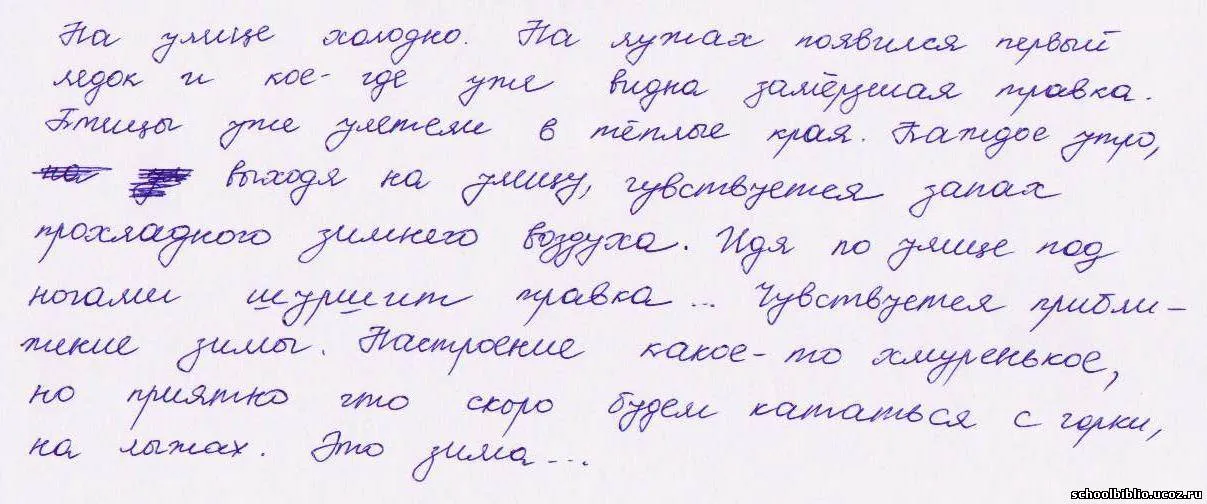 На улице холодно. На лужах появился первый
ледок и кое-где уже видна замёрзшая травка.
Птицы уже улетели в тёплые края. Каждое утро,
выходя на улицу, чувствуется запах
прохладного зимнего воздуха. Идя по улице под
ногами шуршит травка... Чувствуется прибли-
жение зимы. Настроение какое-то хмуренькое,
но приятно что скоро будем кататься с горки,
на лыжах. Это зима...
schoolbiblio.ucoz.ru